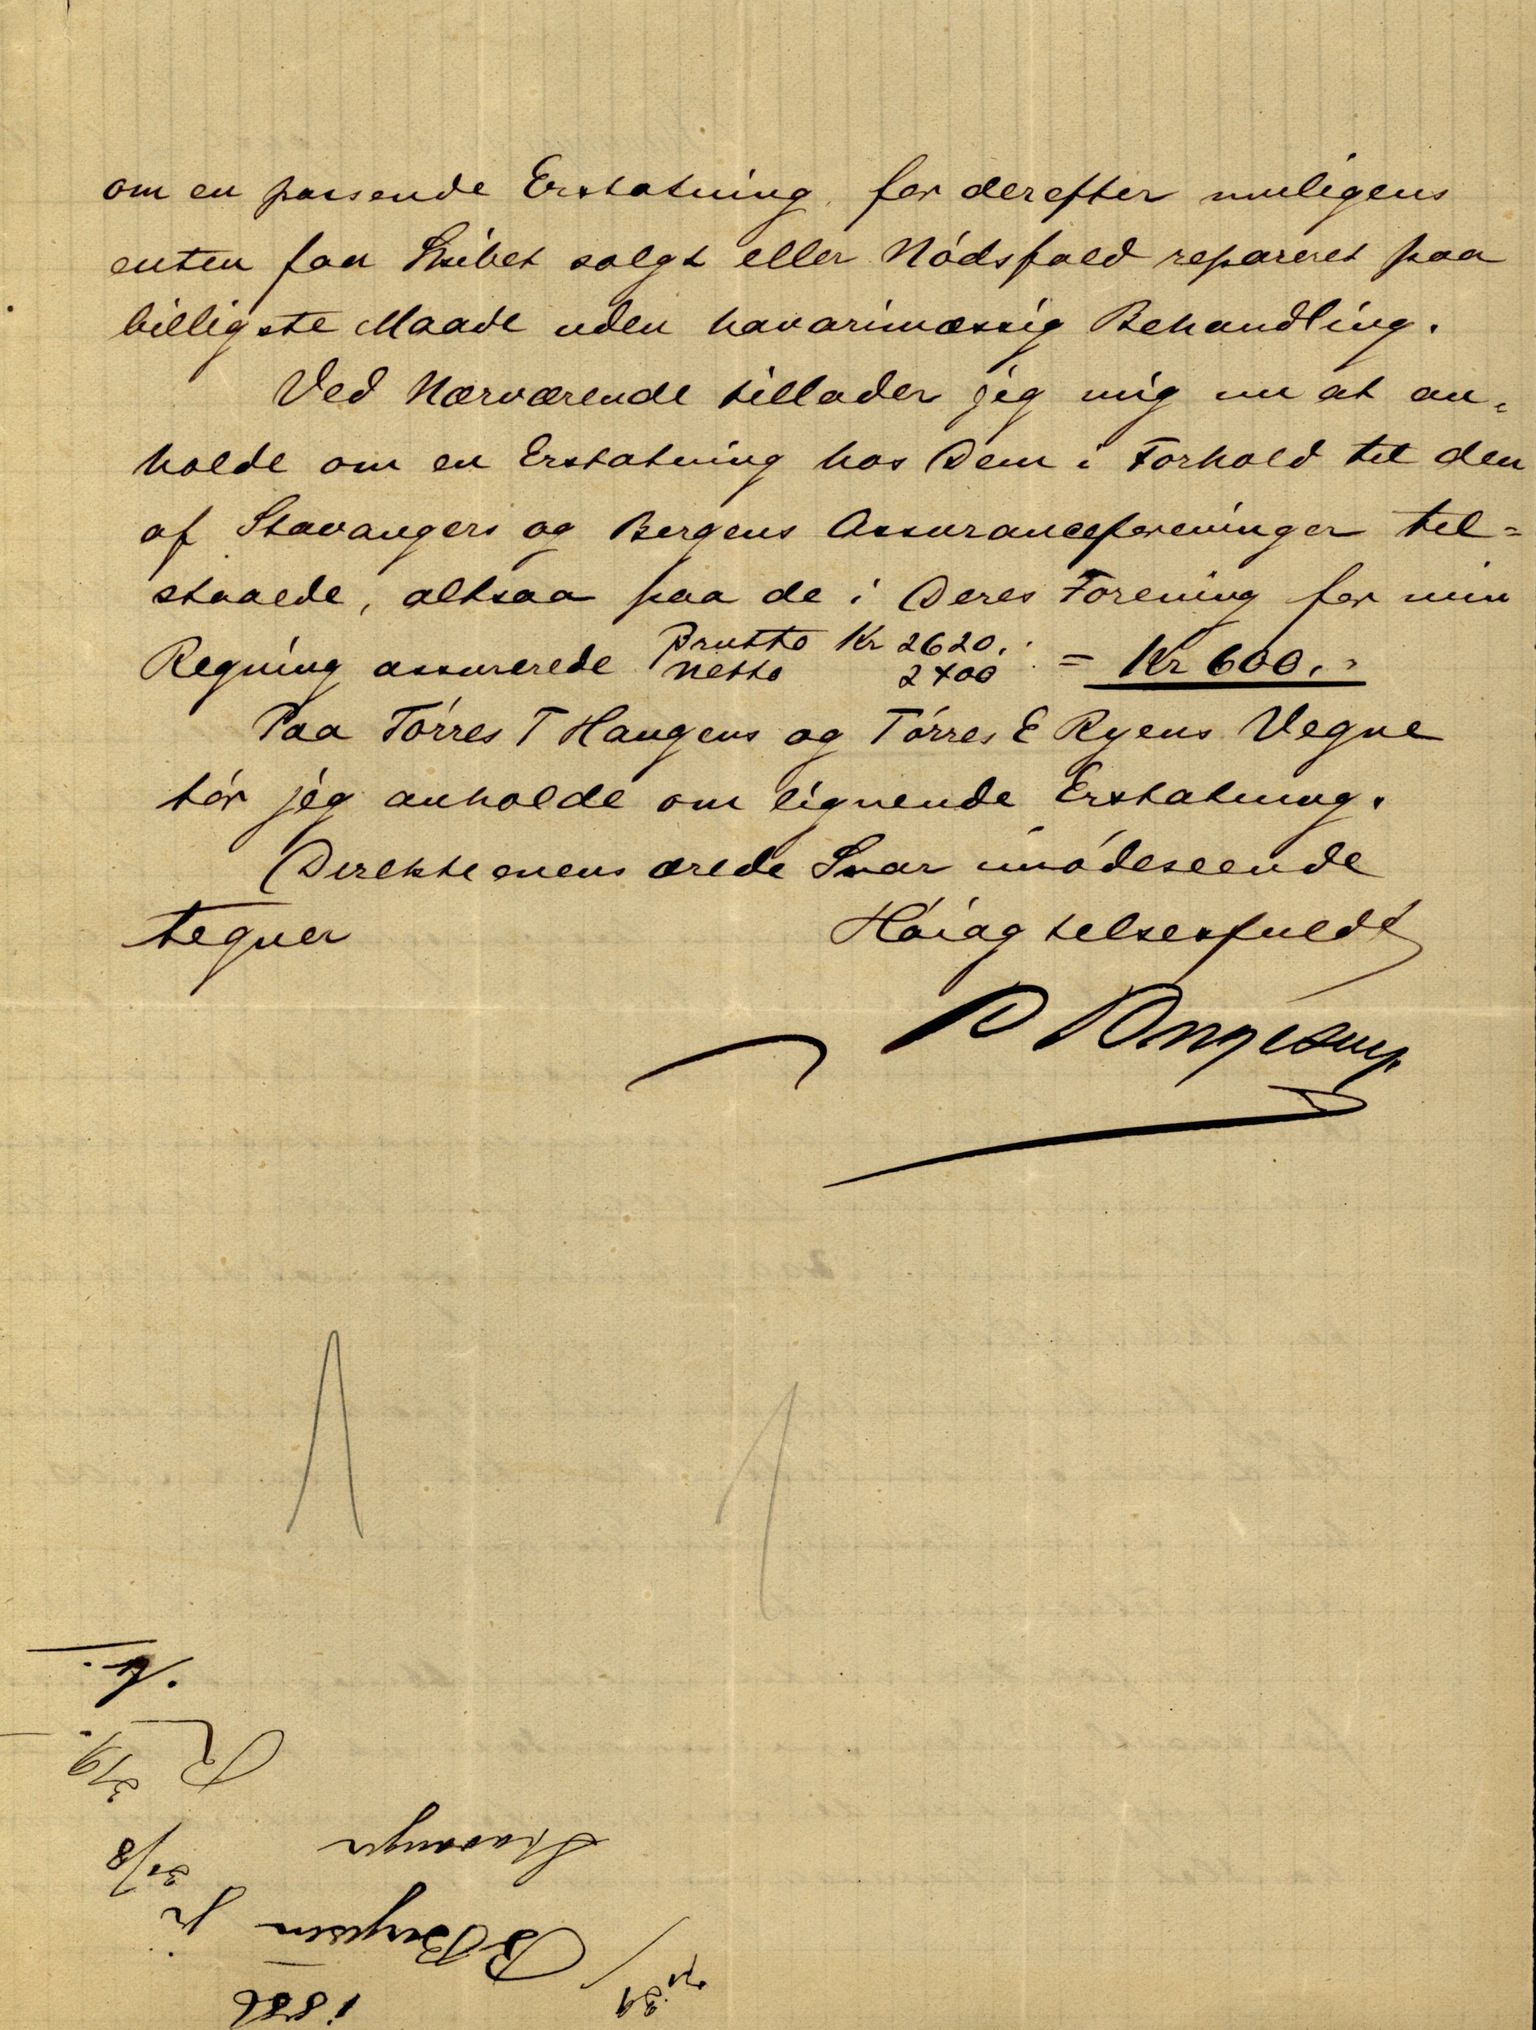 om en passende Erstatning, for derefter muligens
enten faa Skibet solgt eller Nödsfald repareret paa
billigste Maade uden havarimæssig Behandling.
Ved Nærværende tillader jeg mig nu at an-
holde om en Erstatning hos Dem i Forhold til den
af Stavangers og Bergens Assuranceforeninger til=
staaede, altsaa paa de i Deres Forening for min
Regning assurerede Brutto Kr 2620. = Kr 600.
Netto 2400
Paa Törres T Haugens og Törres E Ryens Vegne
tör jeg anholde om lignende Erstatning.
Direktionens ærede Svar imödeseende
tegner Höiagtelsesfuldt
B Bergesen jr.
1886
B Bergesen jr
30/8
Stavanger
R 3/9.